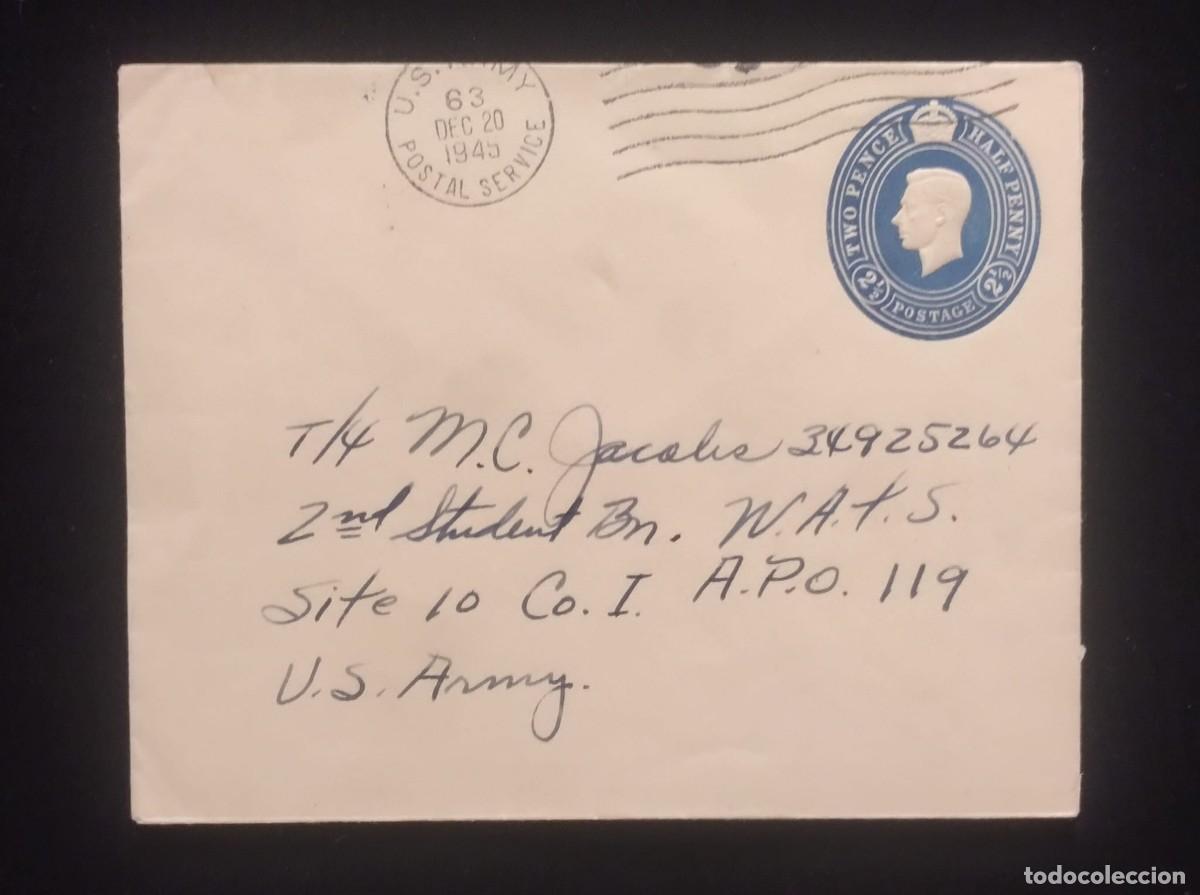 U.S. ARMY
63
DEC 20
1945
POSTAL SERVICE
TWO PENCE HALF PENNY
2½ POSTAGE 2½
T/4 M.C. Jacobs 34925264
2nd Student Bn. W.A.T.S.
Site 10 Co. I. A.P.O. 119
U.S. Army.
todocoleccion